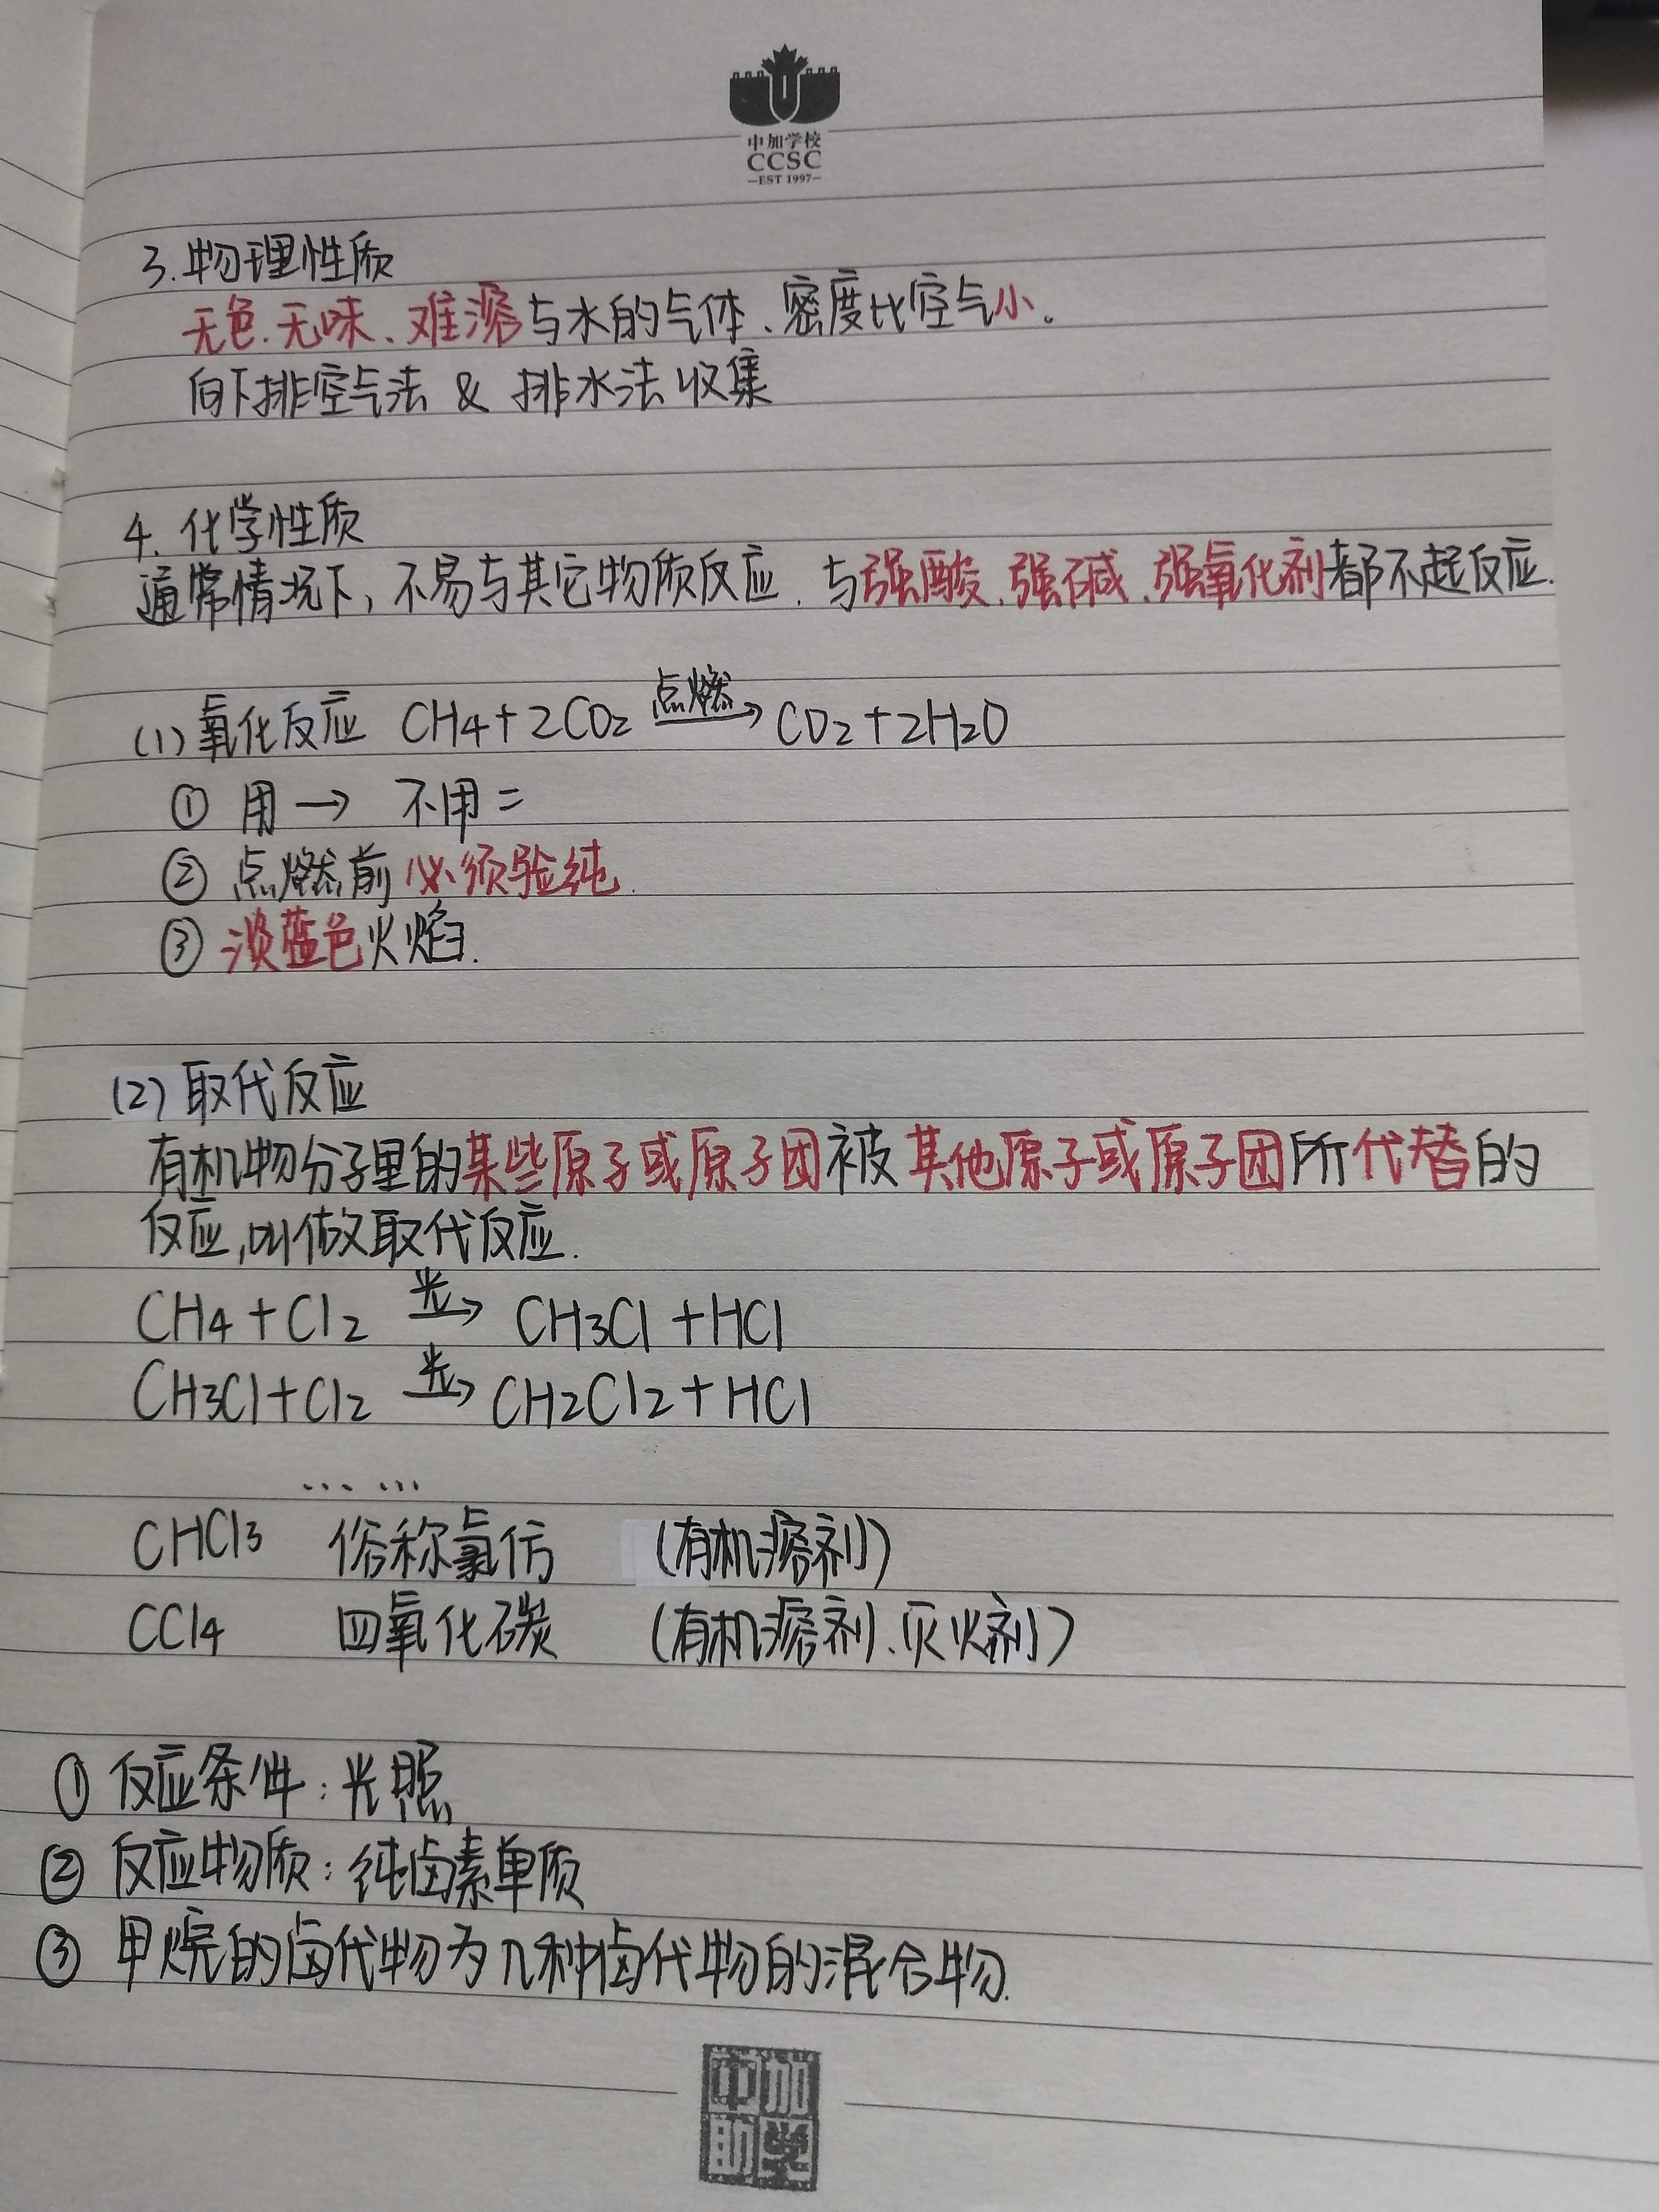 中加学校
CCSC
—EST 1997—
3.物理性质
无色.无味、难溶与水的气体、密度比空气小。
向下排空气法 & 排水法收集
4. 化学性质
通常情况下, 不易与其它物质反应. 与强酸.强碱.强氧化剂都不起反应.
(1)氧化反应 CH4+2CO2 点燃→ CO2+2H2O
① 用→ 不用=
② 点燃前必须验纯.
③ 淡蓝色火焰.
(2)取代反应
有机物分子里的某些原子或原子团被其他原子或原子团所代替的
反应,叫做取代反应.
CH4+Cl2 光→ CH3Cl+HCl
CH3Cl+Cl2 光→ CH2Cl2+HCl
……
CHCl3 俗称氯仿 (有机溶剂)
CCl4 四氧化碳 (有机溶剂、灭火剂)
① 反应条件:光照
② 反应物质:纯卤素单质
③ 甲烷的卤代物为几种卤代物的混合物.
中加